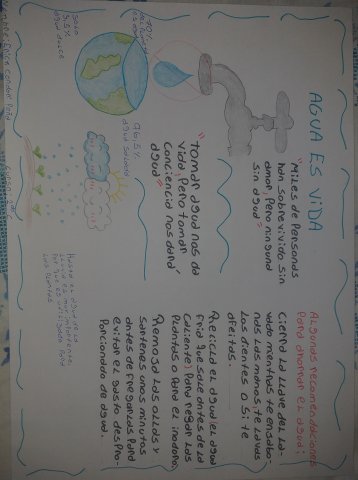 AGUA ES VIDA
"Miles de personas
han sobrevivido sin
amor; Pero ninguna
sin agua"
"tomar agua nos da
vida; Pero tomar
Conciencia nos dará
agua"
70%
del Planeta
es agua
96,5%
agua salada
Solo
3,5%
agua dulce
Algunas recomendaciones
Para ahorrar el agua;
Cierra la llave del la-
vado mientras te enjabo-
nas las manos, te lavas
los dientes o si te
afeitas.
Recicla el agua (el agua
fría que sale antes de la
caliente) para regar las
Plantas o para el inodoro.
Remoja las ollas y
sartenes unos minutos
antes de fregarlas para
evitar el gasto despro-
Porcionado de agua.